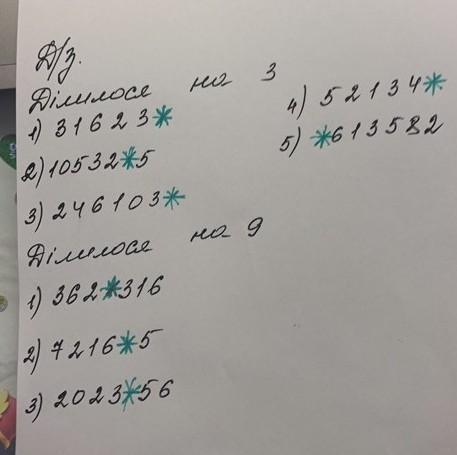 Д/з.
Ділилося на 3
1) 31623*
2) 10532*5
3) 246103*
4) 52134*
5) *613582
Ділилося на 9
1) 362*316
2) 7216*5
3) 2023*56